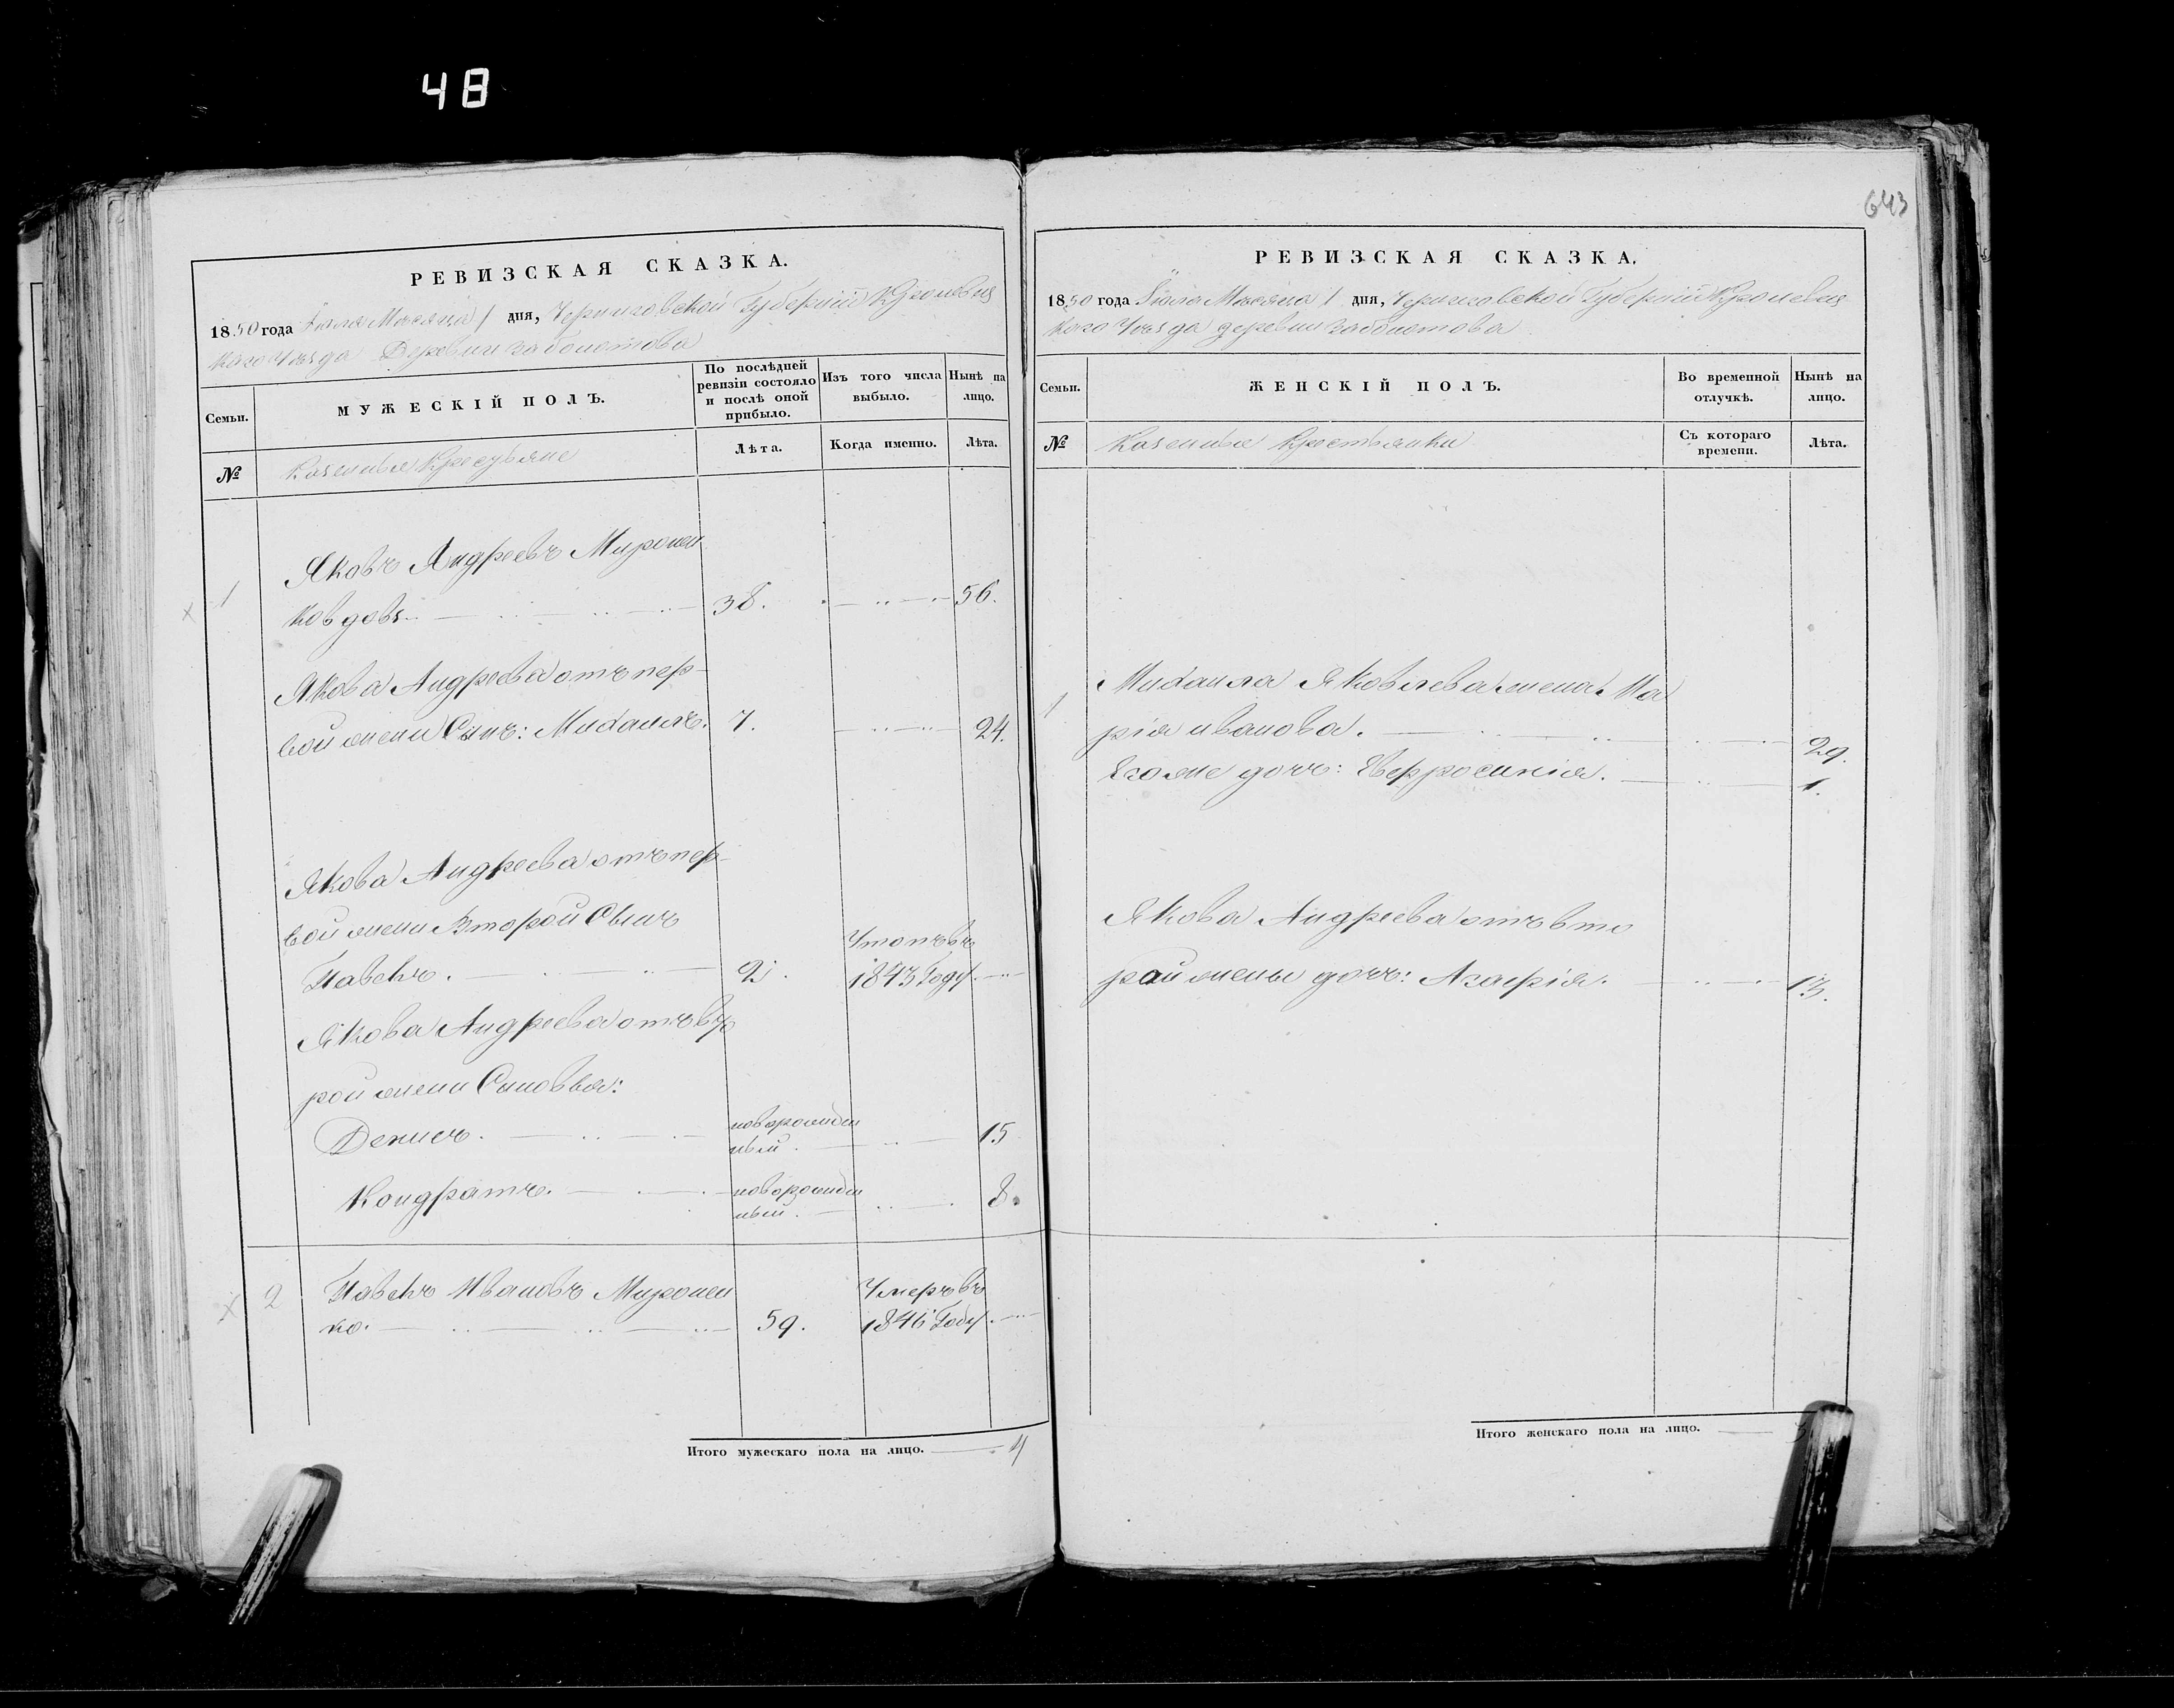 48
643
РЕВИЗСКАЯ СКАЗКА.
1850 года Іюля Месяца 1 дня, Черниговской Губерніи Кролевец
каго Уезда Деревни Заболотова
Семьи.
МУЖЕСКІЙ ПОЛЪ.
По послѣдней ревизіи состояло и послѣ оной прибыло.
Изъ того числа выбыло.
Нынѣ на лицо.
№
Казенные Крестьяне
Лѣта.
Когда именно.
Лѣта.
1 Яковъ Андреевъ Миронен
ков вдовъ 38. 56.
Якова Андреева отъ пер-
вой жени Сынъ: Михаилъ. 7. 24.
Якова Андреева отъ пер-
вой жени Второй Сынъ
Павелъ. 2. Утопъ въ 1843 Году.
Якова Андреева отъ вто
рой жени Сыновья:
Денисъ. новорожден ный. 15
Кондратъ. новорожден ный. 8.
2 Павелъ Ивановъ Миронен
ко. 59. Умеръ въ 1846 Году.
Итого мужескаго пола на лицо. 4
РЕВИЗСКАЯ СКАЗКА.
1850 года Іюля Месяца 1 дня, Черниговской Губерніи Кролевец
каго Уезда деревни Заболотова
Семьи.
ЖЕНСКІЙ ПОЛЪ.
Во временной отлучкѣ.
Нынѣ на лицо.
№
Казенные Крестьянки
Съ котораго времени.
Лѣта.
1 Михаила Яковлева жена Ма
рія Иванова. 29.
Егоже дочь: Ефросинія. 1.
Якова Андреева отъ вто
рой жены дочь: Агафія. 13.
Итого женскаго пола на лицо. 3